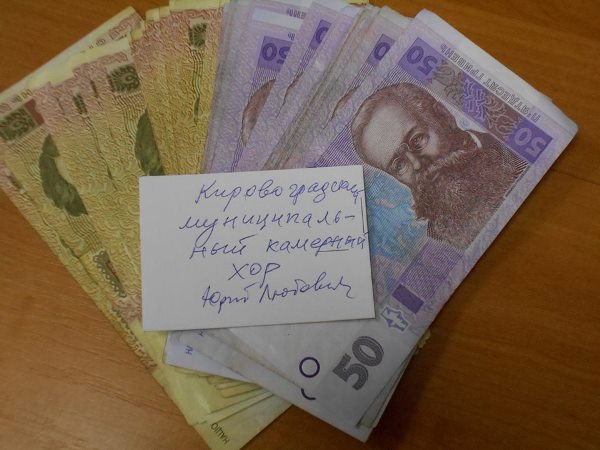 50
50
50
П'ЯТДЕСЯТ ГРИВЕНЬ
50
Кировоградский
муниципаль-
ный камерный
ХОР
Юрий Любович
50
НАЦІО